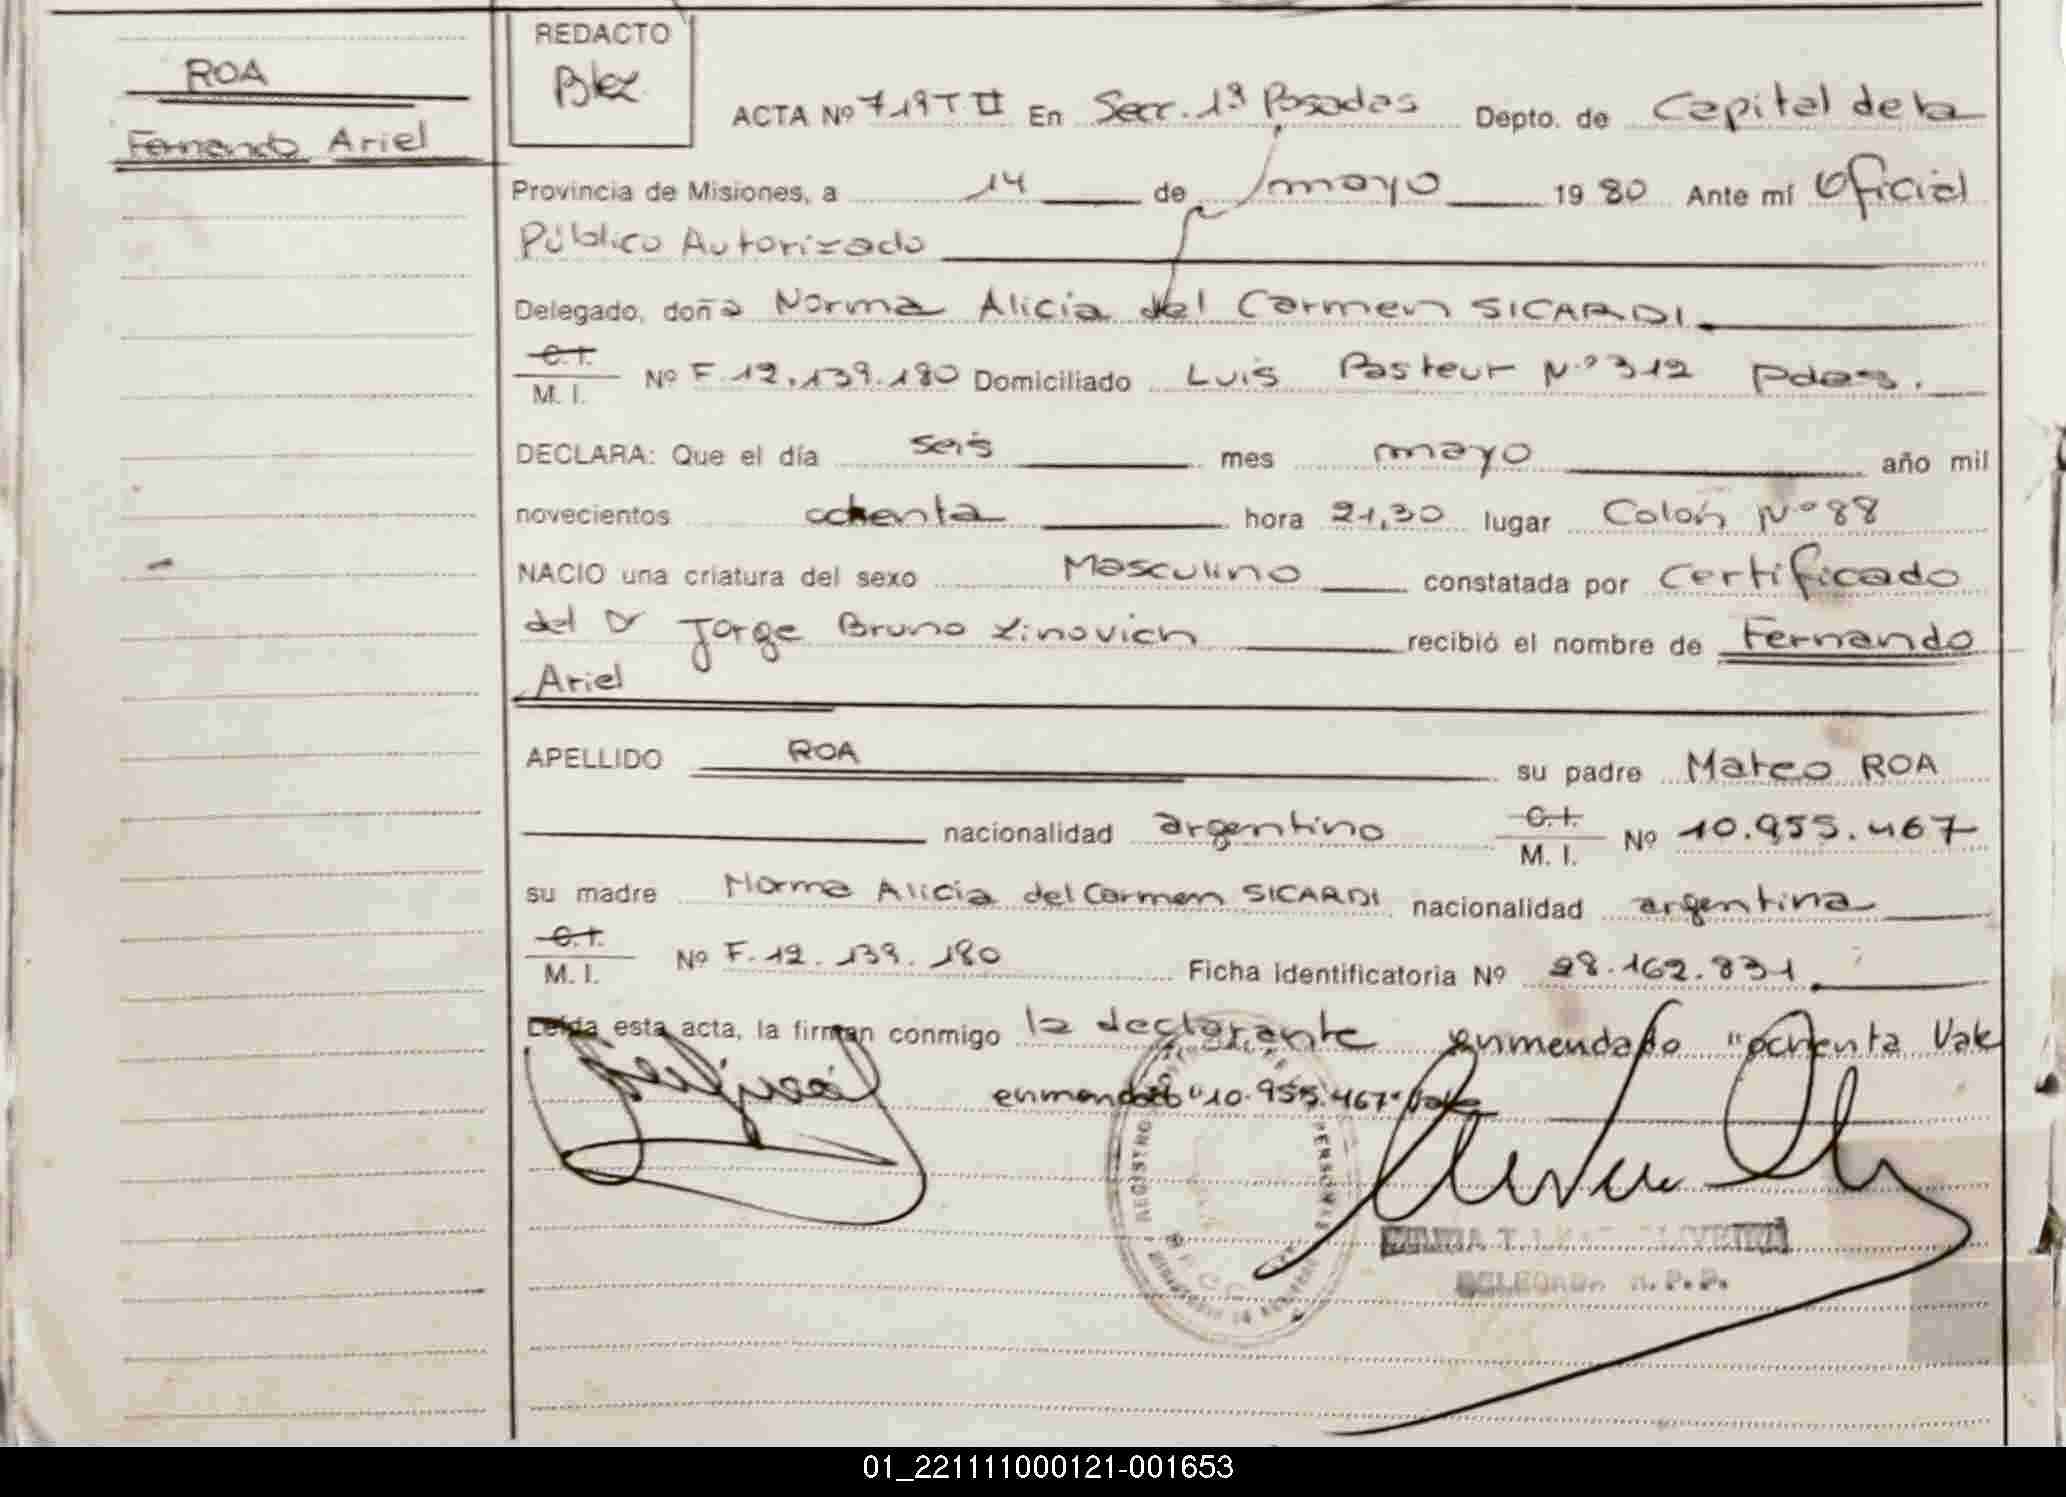 ROA
Fernando Ariel
REDACTO
ACTA Nº 719 T II En Secr. 1ª Posadas Depto. de Capital de la
Provincia de Misiones, a 14 de mayo 1980 Ante mí Oficial
Público Autorizado
Delegado, doña Norma Alicia del Carmen SICARDI.
C.I.
M. I. Nº F. 12.139.180 Domiciliado Luis Pasteur Nº 312 Pdas.
DECLARA: Que el día seis mes mayo año mil
novecientos ochenta hora 21,30 lugar Colón Nº 88
NACIO una criatura del sexo Masculino constatada por Certificado
del Dr Jorge Bruno Zinovich recibió el nombre de Fernando
Ariel
APELLIDO ROA su padre Mateo ROA
nacionalidad argentino C.I. M. I. Nº 10.955.467
su madre Norma Alicia del Carmen SICARDI nacionalidad argentina
C.I.
M. I. Nº F. 12.139.180 Ficha Identificatoria Nº 28.162.831
Leída esta acta, la firman conmigo la declarante enmendado "ochenta Vale
enmendado "10.955.467" Vale
REGISTRO PERSONAS
DELEGADA R.P.P.
01_221111000121-001653